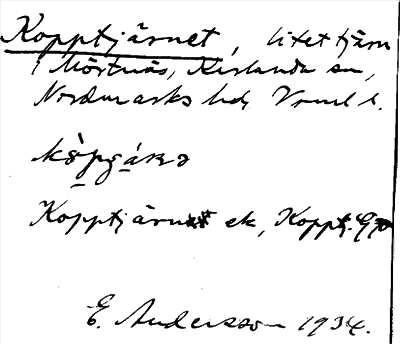 Kopptjärnet, litet tjärn
i Mörtnäs, Karlanda sn,
Nordmarks hd, Vrml l.
Kopptjärnet ek,
E. Andersson 1934.